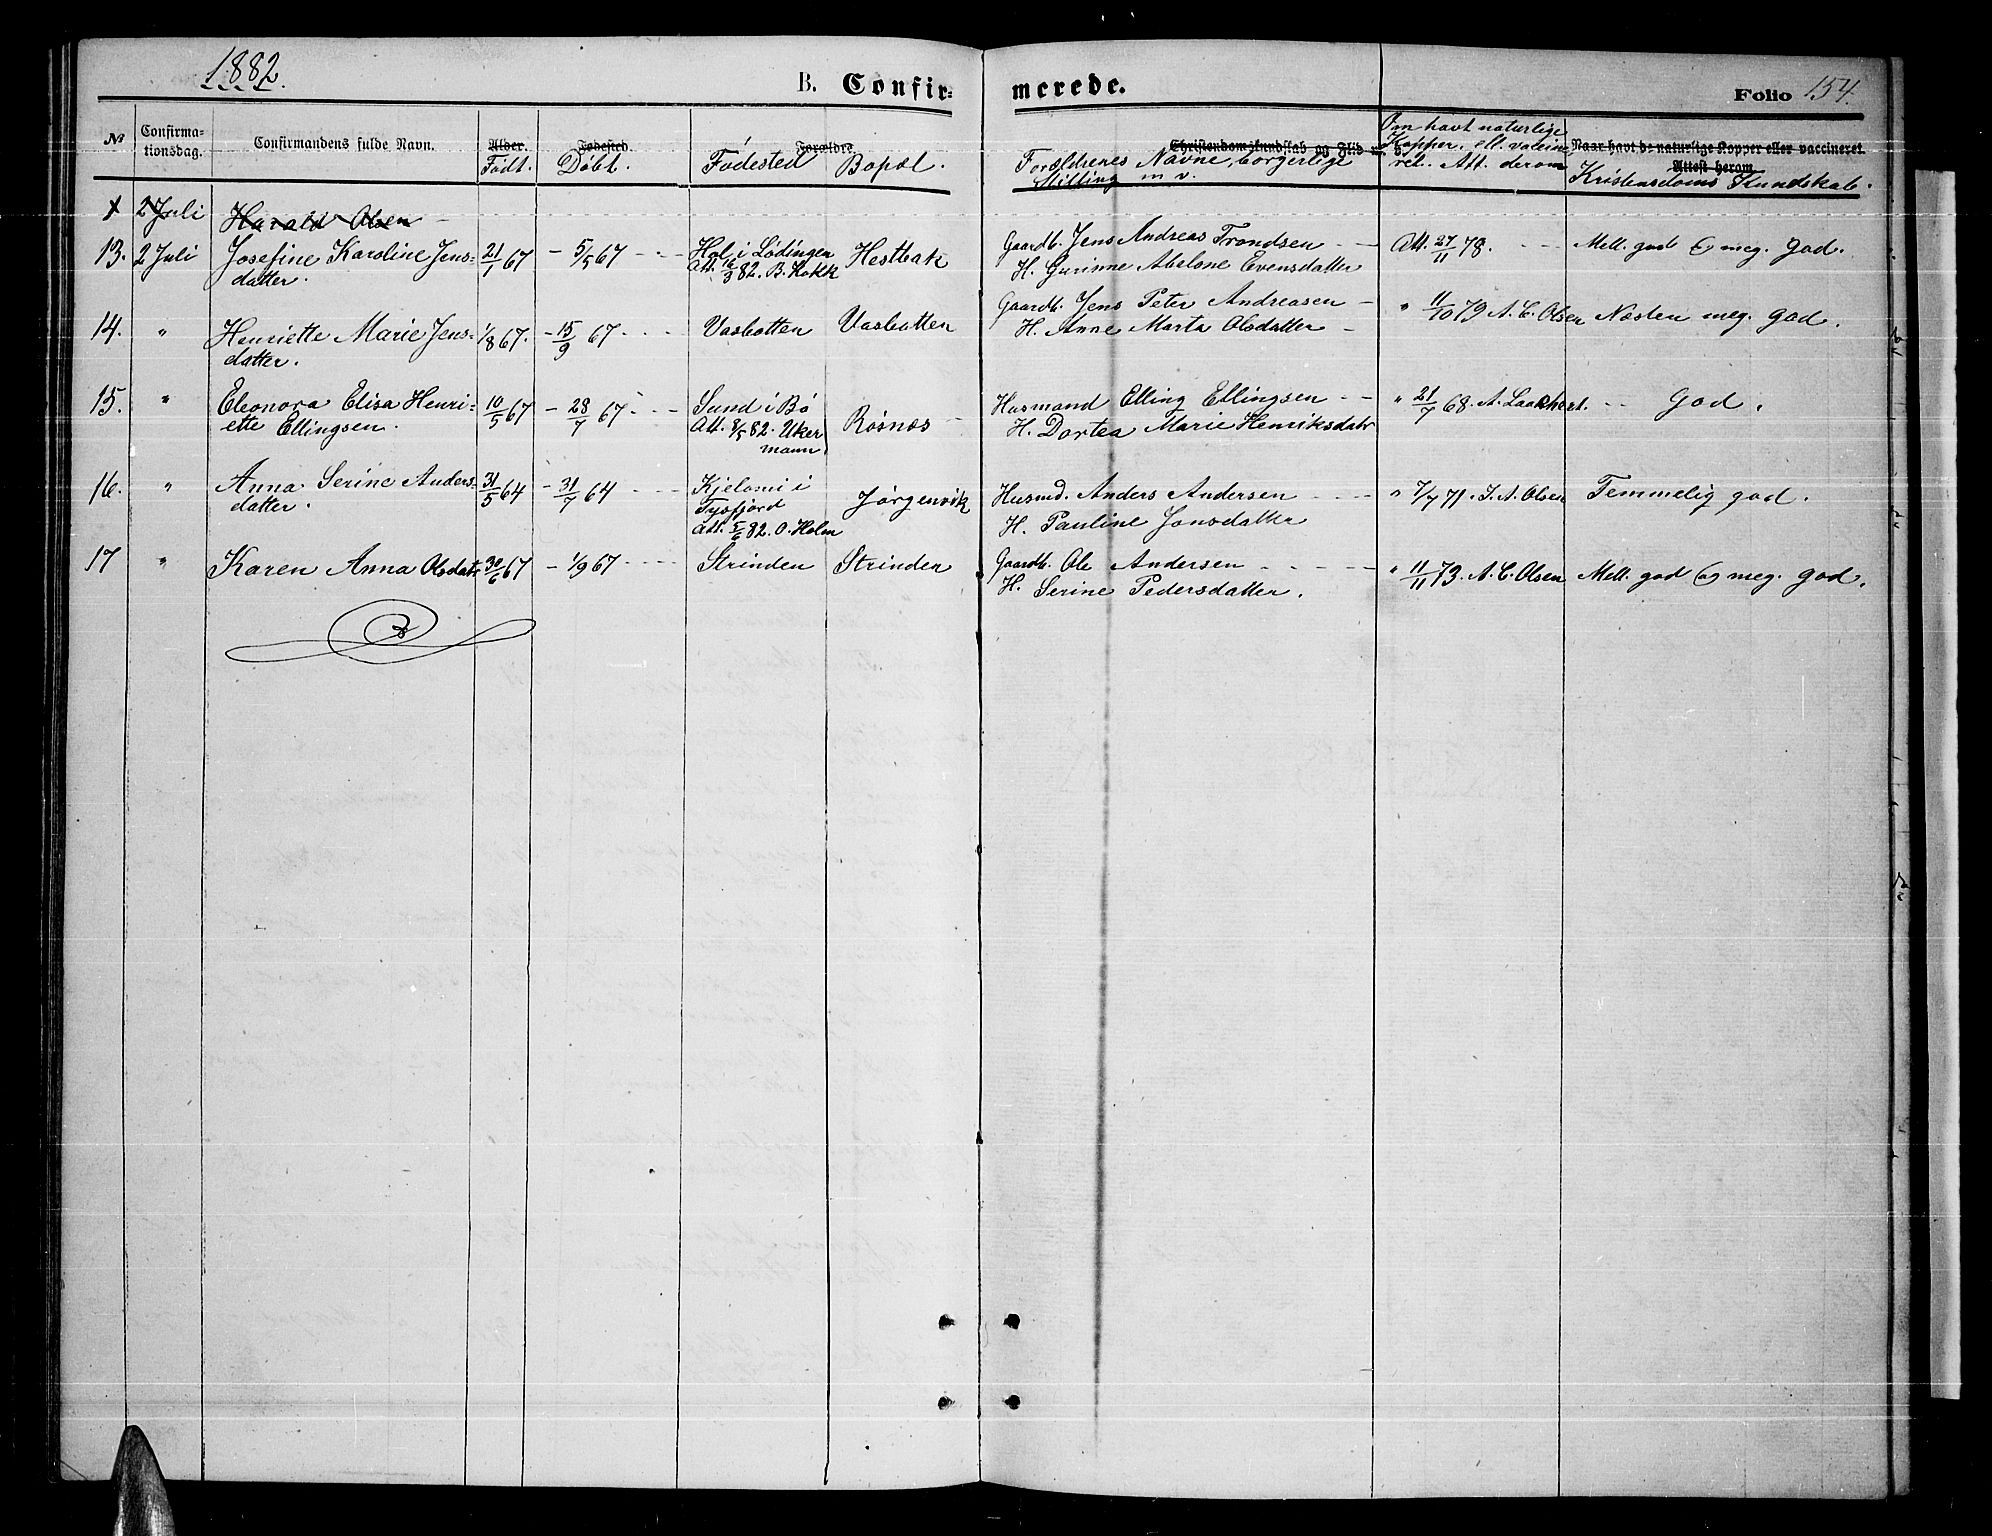 1882.
B. Confirmerede.
Folio 154.
№ Confirmationsdag. Confirmandens fulde Navn. Alder. Født. Fødested. Døbt. Forældre. Fødested Bopæl.
Christendomskundskab og Flid
Forældrenes Navne, borgerlige
Stilling m v.
Om havt naturlige
Kopper. ell. vaccine
ret. Att. derom
Naar havt de naturlige Kopper eller vaccineret.
Attest herom.
Kristendoms Kundskab.
1 2 Juli Harald Olsen
13. 2 Juli Josefine Karoline Jens- 21/1 67 - 5/5 67 Hol i Lødingen Hestbak Gaardb. Jens Andreas Trondsen Att. 27/11 78. Mell. god og meg. god.
datter. Att. 16/3 82. B. Kokk H. Gurinne Abelone Evensdatter
14. " Henriette Marie Jens- 1/8 67. - 15/9 67 Vasbotten Vasbotten Gaardb. Jens Peter Andreasen " 11/10 79 A. C. Olsen Næsten meg. god.
datter. H. Anne Marta Olsdatter
15. " Eleonora Elisa Henri- 10/5 67 - 28/7 67 Sund i Bø Røsnæs Husmand Elling Ellingsen " 21/7 68. A. God.
ette Ellingsen. Att. 8/5 82. Uker H. Dortea Marie Henriksdatr
mann
16. " Anna Serine Anders- 31/5 64 - 31/7 64 Kjelomi i Jørgenvik Husmd. Anders Andersen " 7/7 71. J. A. Olsen Temmelig god.
datter. Tysfjord H. Pauline Jonsdatter
Att. 5/6 82. O. Holm
17 " Karen Anna Olsdatr 30/6 67 - 1/9 67 Strinden Strinden Gaardb. Ole Andersen " 11/11 73. A. C. Olsen Mell. god og meg. god.
H. Serine Pedersdatter.